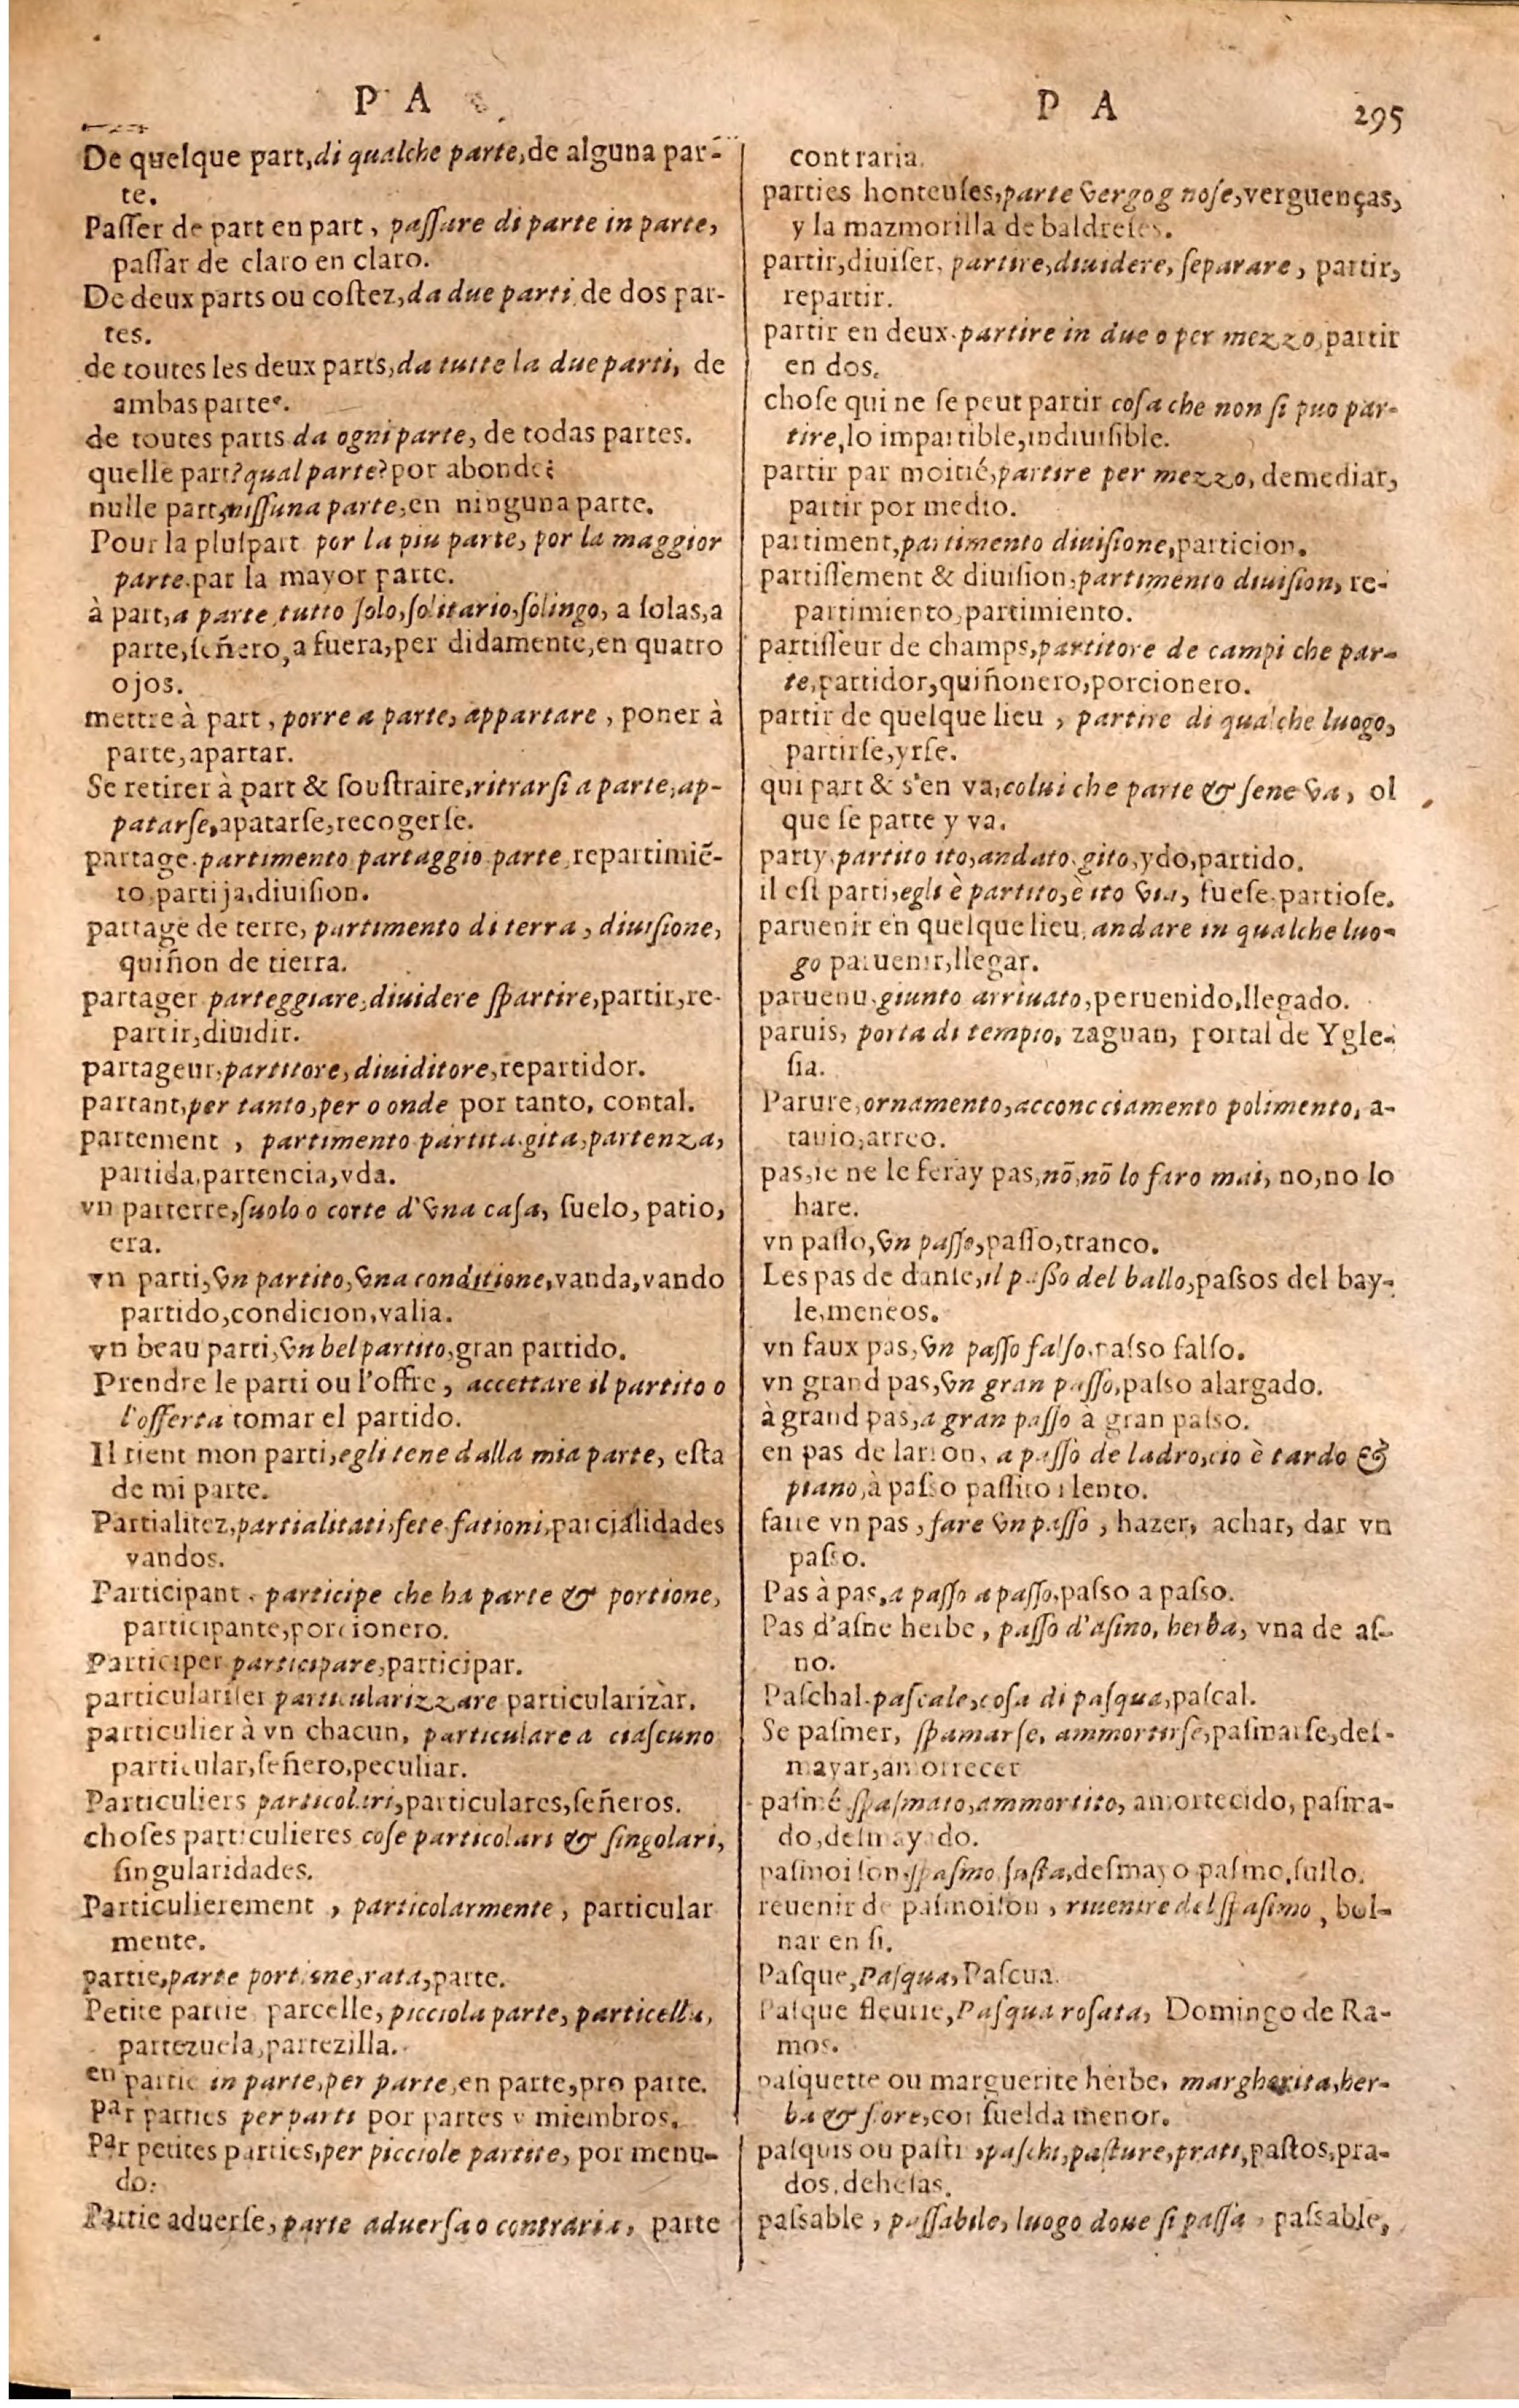 P A
De quelque part, di qualche parte, de alguna par-
te.
Paſſer de part en part, paſſare di parte in parte,
paſſar de claro en claro.
De deux parts ou coſtez, da due parti, de dos par-
tes.
de toutes les deux parts, da tutte la due parti, de
ambas partes.
de toutes parts da ogni parte, de todas partes.
quelle part? qual parte? por abonde?
nulle part, niſſuna parte, en ninguna parte.
Pour la pluſpart por la piu parte, por la maggior
parte. par la mayor parte.
à part, a parte, tutto ſolo, ſolitario, ſolingo, a ſolas, a
parte, ſeñero, a fuera, per didamente, en quatro
ojos.
mettre à part, porre a parte, appartare, poner à
parte, apartar.
Se retirer à part & ſouſtraire, ritrarſi a parte, ap-
patarſe, apatarſe, recogerſe.
partage. partimento partaggio parte, repartimiẽ-
to, partija, diuiſion.
partage de terre, partimento di terra, diuiſione,
quiñon de tierra.
partager parteggiare, diuidere ſpartire, partir, re-
partir, diuidir.
partageur, partitore, diuiditore, repartidor.
partant, per tanto, per o onde por tanto, contal.
partement, partimento partita. gita, partenza,
partida, partencia, yda.
vn parterre, ſuolo o corte d'vna caſa, ſuelo, patio,
era.
vn parti, vn partito, vna conditione, vanda, vando
partido, condicion, valia.
vn beau parti, vn bel partito, gran partido.
Prendre le parti ou l'offre, accettare il partito o
l'offerta tomar el partido.
Il tient mon parti, egli tene dalla mia parte, eſta
de mi parte.
Partialitez, partialitati, ſete. fationi, parcialidades
vandos.
Participant, participe che ha parte & portione,
participante, porcionero.
Participer participare, participar.
particulariſer particularizzare particularizàr.
particulier à vn chacun, particulare a ciaſcuno
particular, ſeñero, peculiar.
Particuliers particolari, particulares, ſeñeros.
choſes particulieres coſe particolari & ſingolari,
ſingularidades.
Particulierement, particolarmente, particular
mente.
partie, parte portione, rata, parte.
Petite partie parcelle, picciola parte, particella,
partezuela, partezilla.
en partie in parte, per parte, en parte, pro parte.
Par parties per parti por partes y miembros.
Par petites parties, per picciole partite, por menu-
do.
Partie aduerſe, parte aduerſa o contraria, parte
P A
295
contraria.
parties honteuſes, parte vergog noſe, verguenças,
y la mazmorilla de baldreſes.
partir, diuiſer, partire, diuidere, ſeparare, partir,
repartir.
partir en deux. partire in due o per mezzo, partir
en dos.
choſe qui ne ſe peut partir coſa che non ſi puo par-
tire, lo impartible, indiuiſible.
partir par moitié, partire per mezzo, demediar,
partir por medio.
partiment, partimento diuiſione, particion.
partiſſement & diuiſion, partimento diuiſion, re-
partimiento, partimiento.
partiſſeur de champs, partitore de campi che par-
te, partidor, quiñonero, porcionero.
partir de quelque lieu, partire di qualche luogo,
partirſe, yrſe.
qui part & s'en va, colui che parte & ſene va, ol
que ſe parte y va.
party. partito ito, andato. gito, ydo, partido.
il eſt parti, egli è partito, è ito via, fueſe. partioſe.
paruenir en quelque lieu, andare in qualche luo-
go paruenir, llegar.
paruenu, giunto arriuato, peruenido, llegado.
paruis, porta di tempio, zaguan, portal de Ygle-
ſia.
Parure, ornamento, acconcciamento polimento, a-
tauio, arreo.
pas, ie ne le feray pas, nõ, nõ lo faro mai, no, no lo
hare.
vn paſſo, vn paſſo, paſſo, tranco.
Les pas de danſe, il paſſo del ballo, paſsos del bay-
le, meneos.
vn faux pas, vn paſſo falſo, paſso falſo.
vn grand pas, vn gran paſſo, paſso alargado.
à grand pas, a gran paſſo à gran paſso.
en pas de larron, a paſſo de ladro, cio è tardo &
piano, à paſso paſſito i lento.
faire vn pas, fare vn paſſo, hazer, achar, dar vn
paſso.
Pas à pas, a paſſo a paſſo, paſso a paſso.
Pas d'aſne herbe, paſſo d'aſino, herba, vna de aſ-
no.
Paſchal. paſcale, coſa di paſqua, paſcal.
Se paſmer, ſpamarſe, ammortirſe, paſmarſe, deſ-
mayar, amorrecer
paſmé ſpaſmato, ammortito, amortecido, paſma-
do, deſmayado.
paſmoiſon, ſpaſmo ſuſta, deſmayo paſmo, ſuſto.
reuenir de paſmoiſon, riuenire del ſpaſimo, bol-
nar en ſi.
Paſque, Paſqua, Paſcua.
Paſque fleurie, Paſqua roſata, Domingo de Ra-
mos.
paſquette ou marguerite herbe, margherita, her-
ba & fiore, con ſuelda menor.
paſquis ou paſti, paſchi, paſture, prati, paſtos, pra-
dos, deheſas.
paſsable, paſſabile, luogo doue ſi paſſa, paſsable,